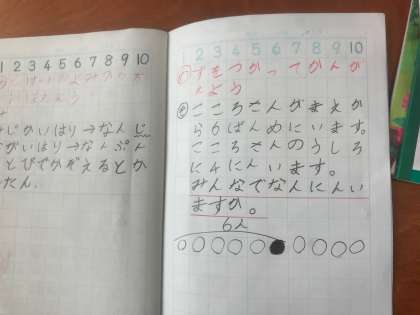 1 2 3 4 5 6 7 8 9 10
みじかいはり→なんじ
ながいはり→なんぷん
とびでかぞえるとか
たん.
1 2 3 4 5 6 7 8 9 10
めずをつかってかんが
えよう
もこころさんがまえか
ら6ばんめにいます。
こころさんのうしろ
に4にんいます。
みんなでなんにんい
ますか。
6人